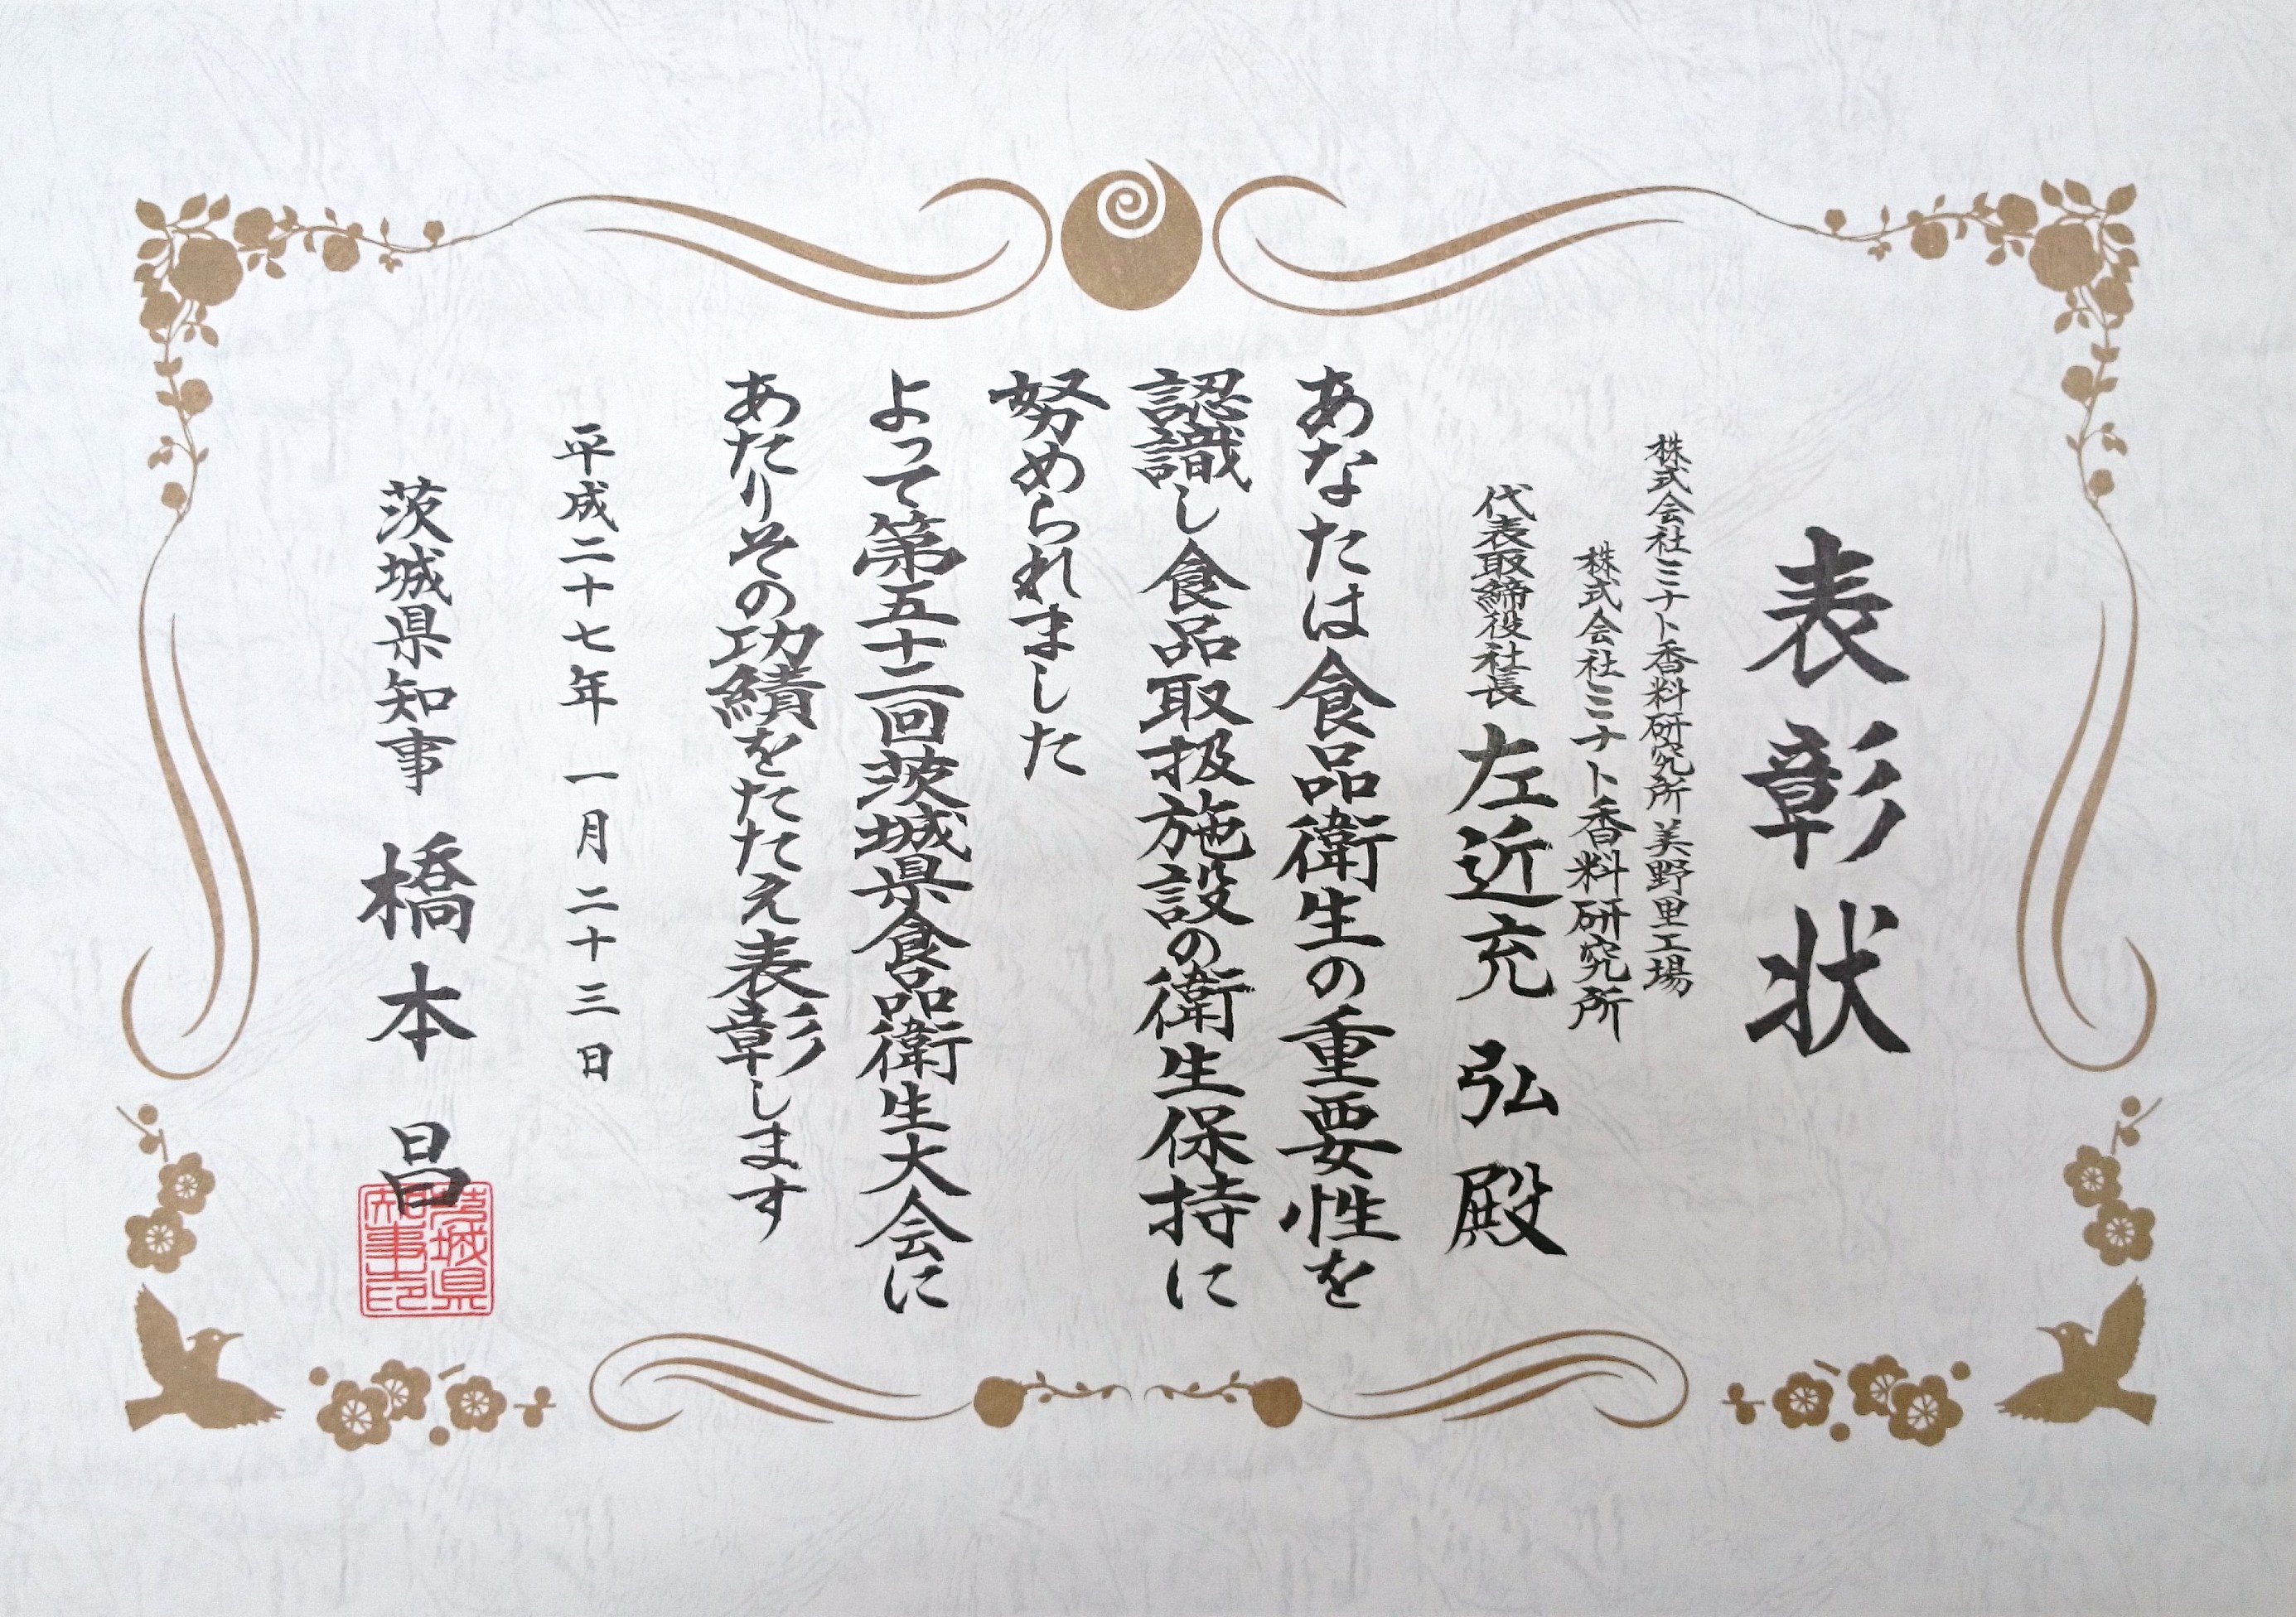 表彰状
株式会社ミナト香料研究所 美野里工場
株式会社ミナト香料研究所
代表取締役社長 左近充 弘 殿
あなたは食品衛生の重要性を
認識し食品取扱施設の衛生保持に
努められました
よって第五十二回茨城県食品衛生大会に
あたりその功績をたたえ表彰します
平成二十七年 一月二十三日
茨城県知事 橋本 昌
茨城県知事之印